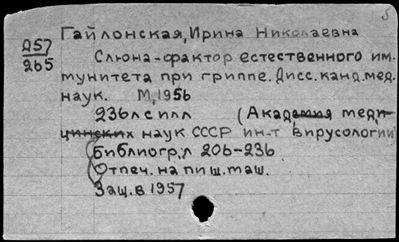 Гайлонская, Ирина Николаевна
Д57
265
Слюна-фактор естественного им-
мунитета при гриппе. Дисс. канд. мед.
наук. М, 1956
236 л с илл (Академия меди
цинских наук СССР ин-т вирусологии
Библиогр, л 206-236
Отпеч. на пиш. маш.
Защ. в 1957